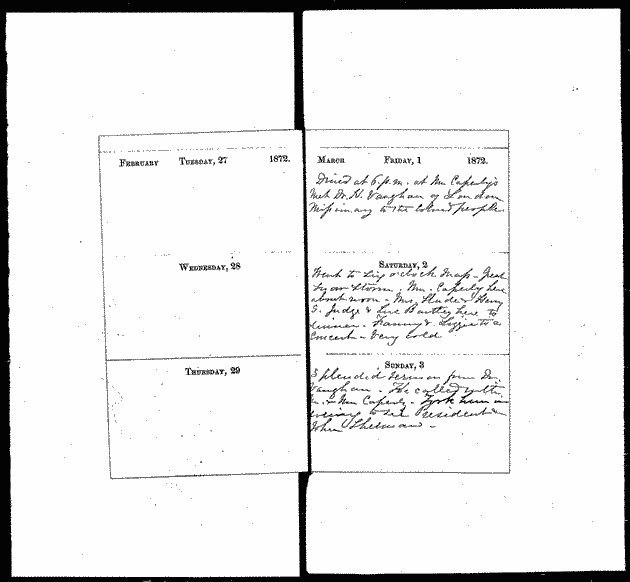 FEBRUARY TUESDAY, 27 1872.
WEDNESDAY, 28
THURSDAY, 29
MARCH FRIDAY, 1 1872.
Dined at 6 p.m. at Mr Caperty's
Met Dr. H. Vaughan of London
Missionary to the colored people.
SATURDAY, 2
Went to six o'clock Mass - Great
snow storm. Mr. Caperty here
about noon - Mrs. & Henry
S. Judge & Bartley here to
dinner - Fanny & Lizzie to a
Concert - Very cold
SUNDAY, 3
Splendid sermon from Dr.
Vaughan - He called with
Mr. & Mrs Caperty - Took him in
evening to see President &
John Sherman -